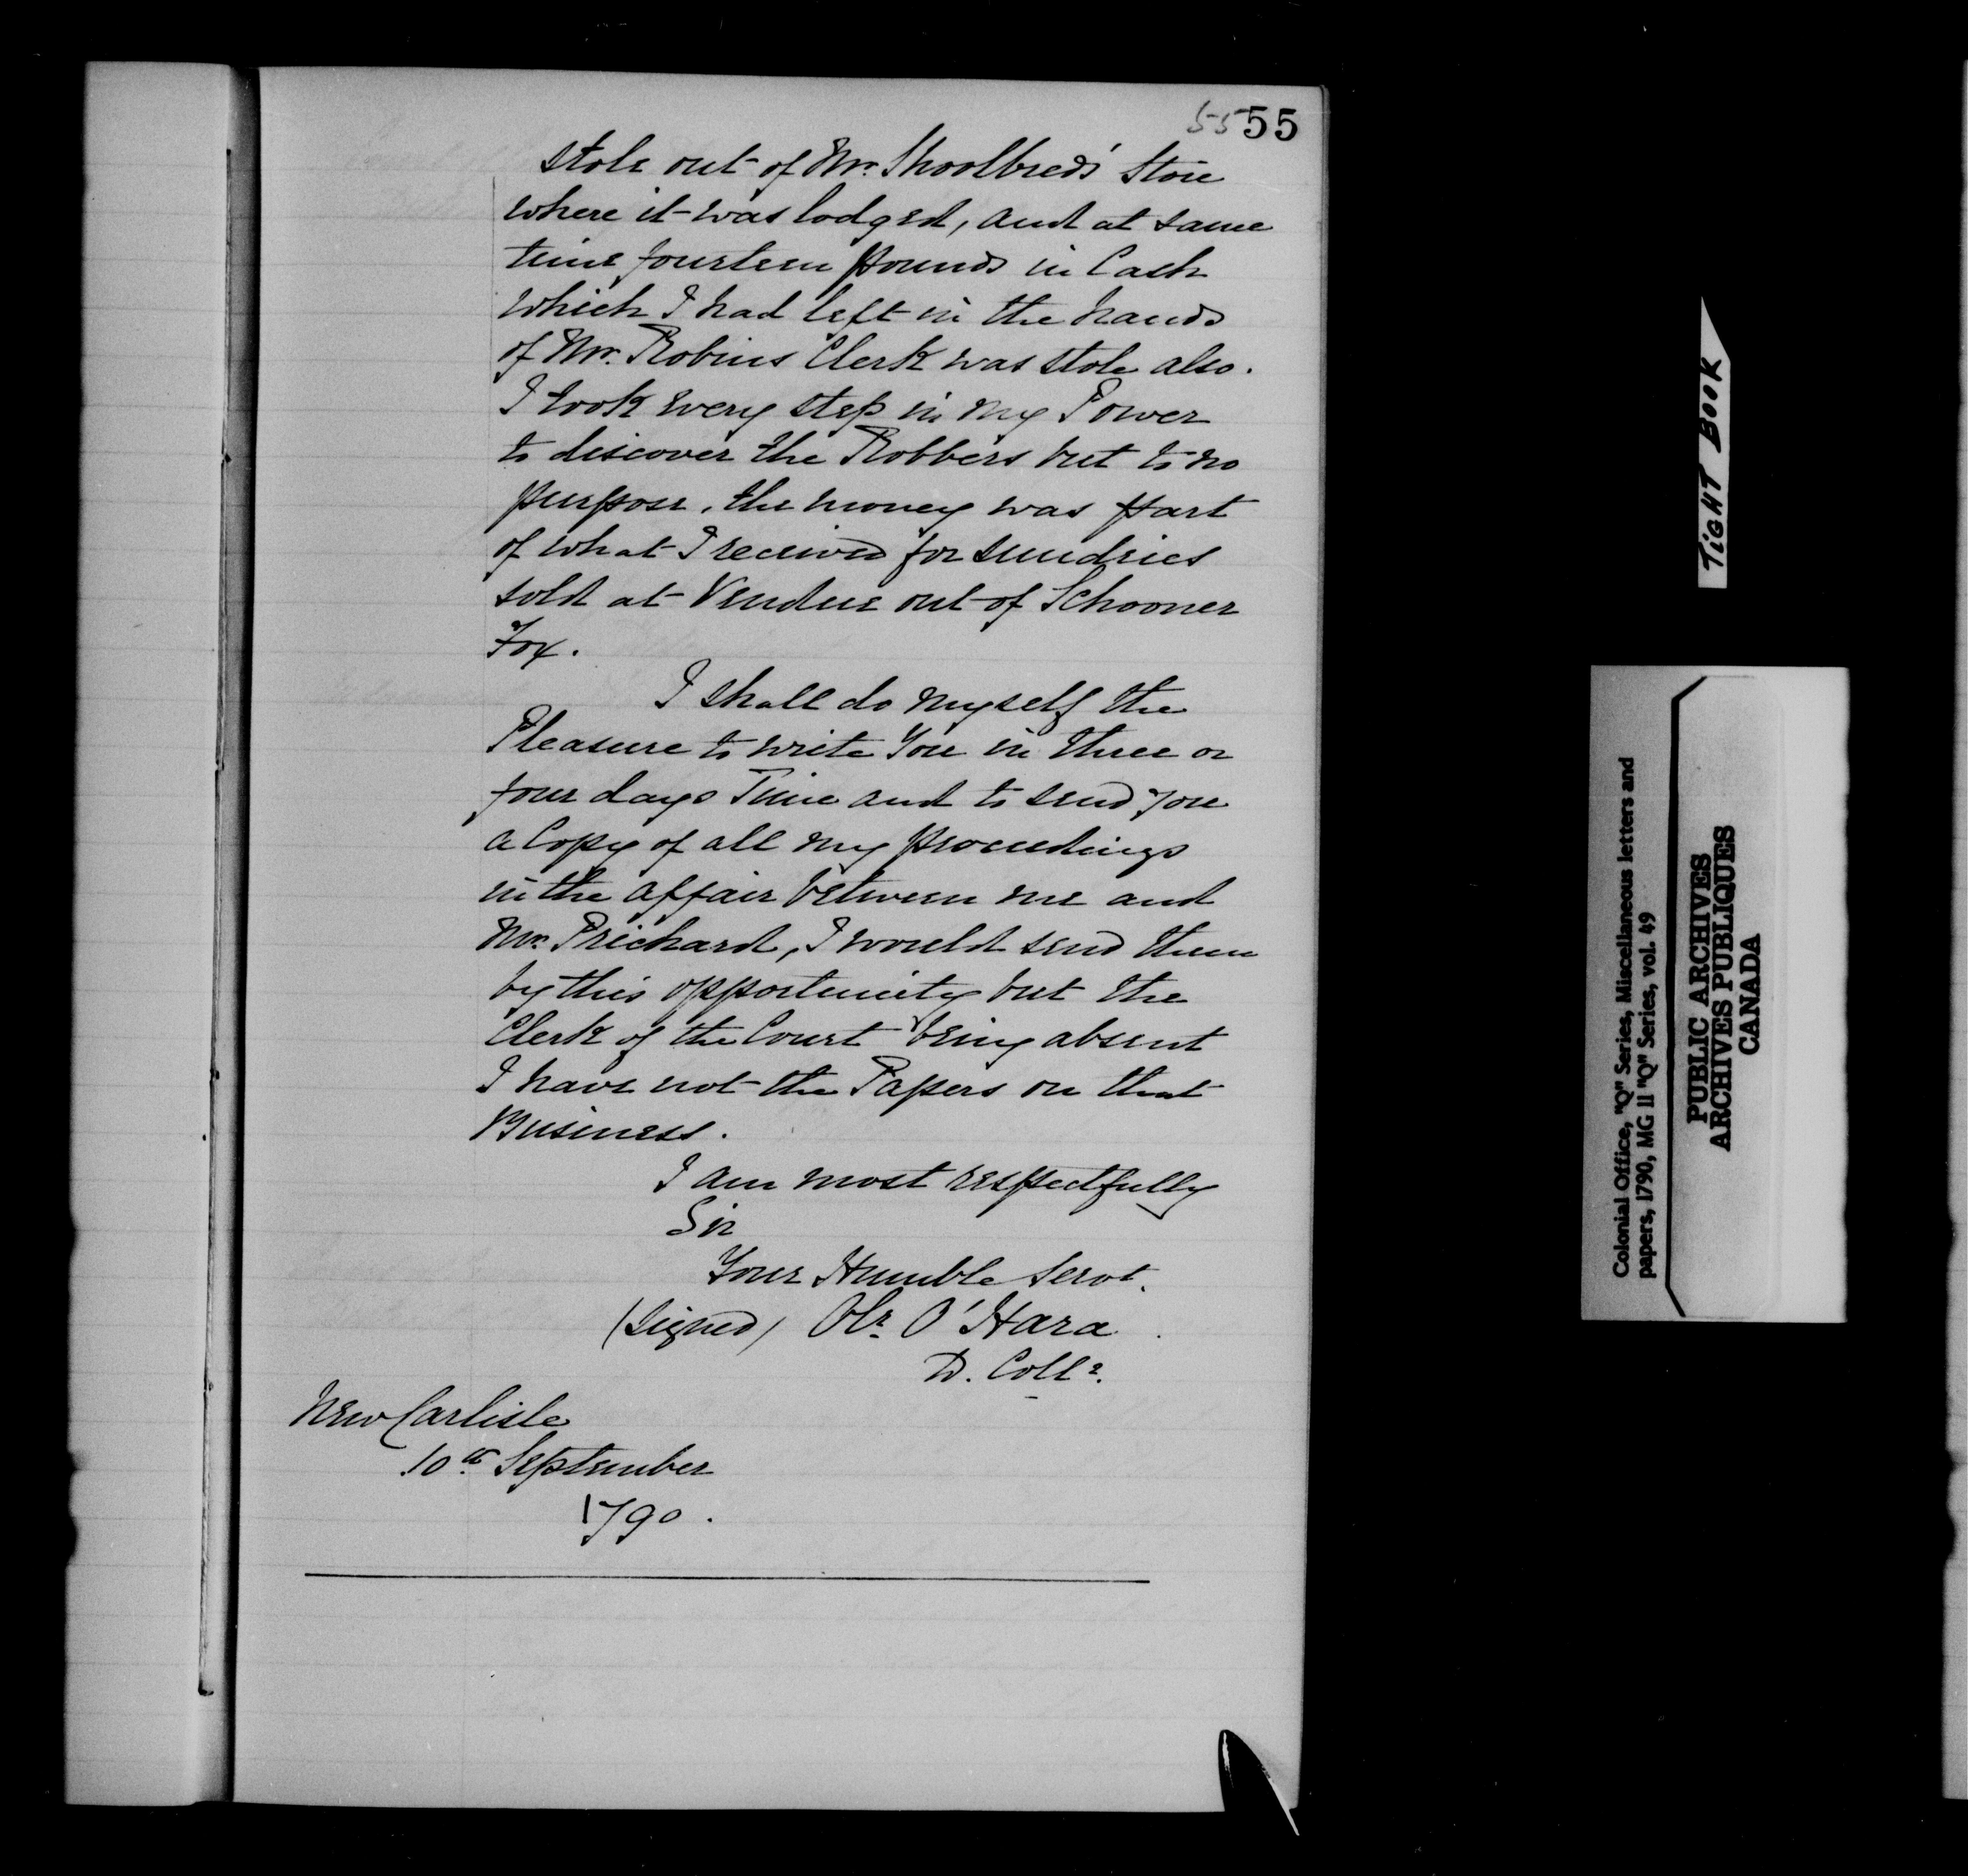 55 55
stole out of Mr. Shoolbreds' Store
where it was lodged, and at same
time fourteen Pounds in Cash
which I had left in the hands
of Mr. Robins Clerk was stole also.
I took every step in my Power
to discover the Robbers but to no
purpose, the money was part
of what I received for sundries
sold at Vendue out of Schooner
Fox.
I shall do myself the
Pleasure to write You in three or
four days Time and to send you
a Copy of all my proceedings
in the affair between me and
Mr. Prichard, I would send them
by this opportunity but the
Clerk of the Court being absent
I have not the Papers on that
Business.
I am most respectfully
Sir
Your Humble Servt.
(signed) Olr. O'Hara
D. Collr.
New Carlisle
10th September
1790.
TIGHT BOOK
Colonial Office, "Q" Series, Miscellaneous letters and
papers, 1790, MG 11 "Q" Series, vol. 49
PUBLIC ARCHIVES
ARCHIVES PUBLIQUES
CANADA